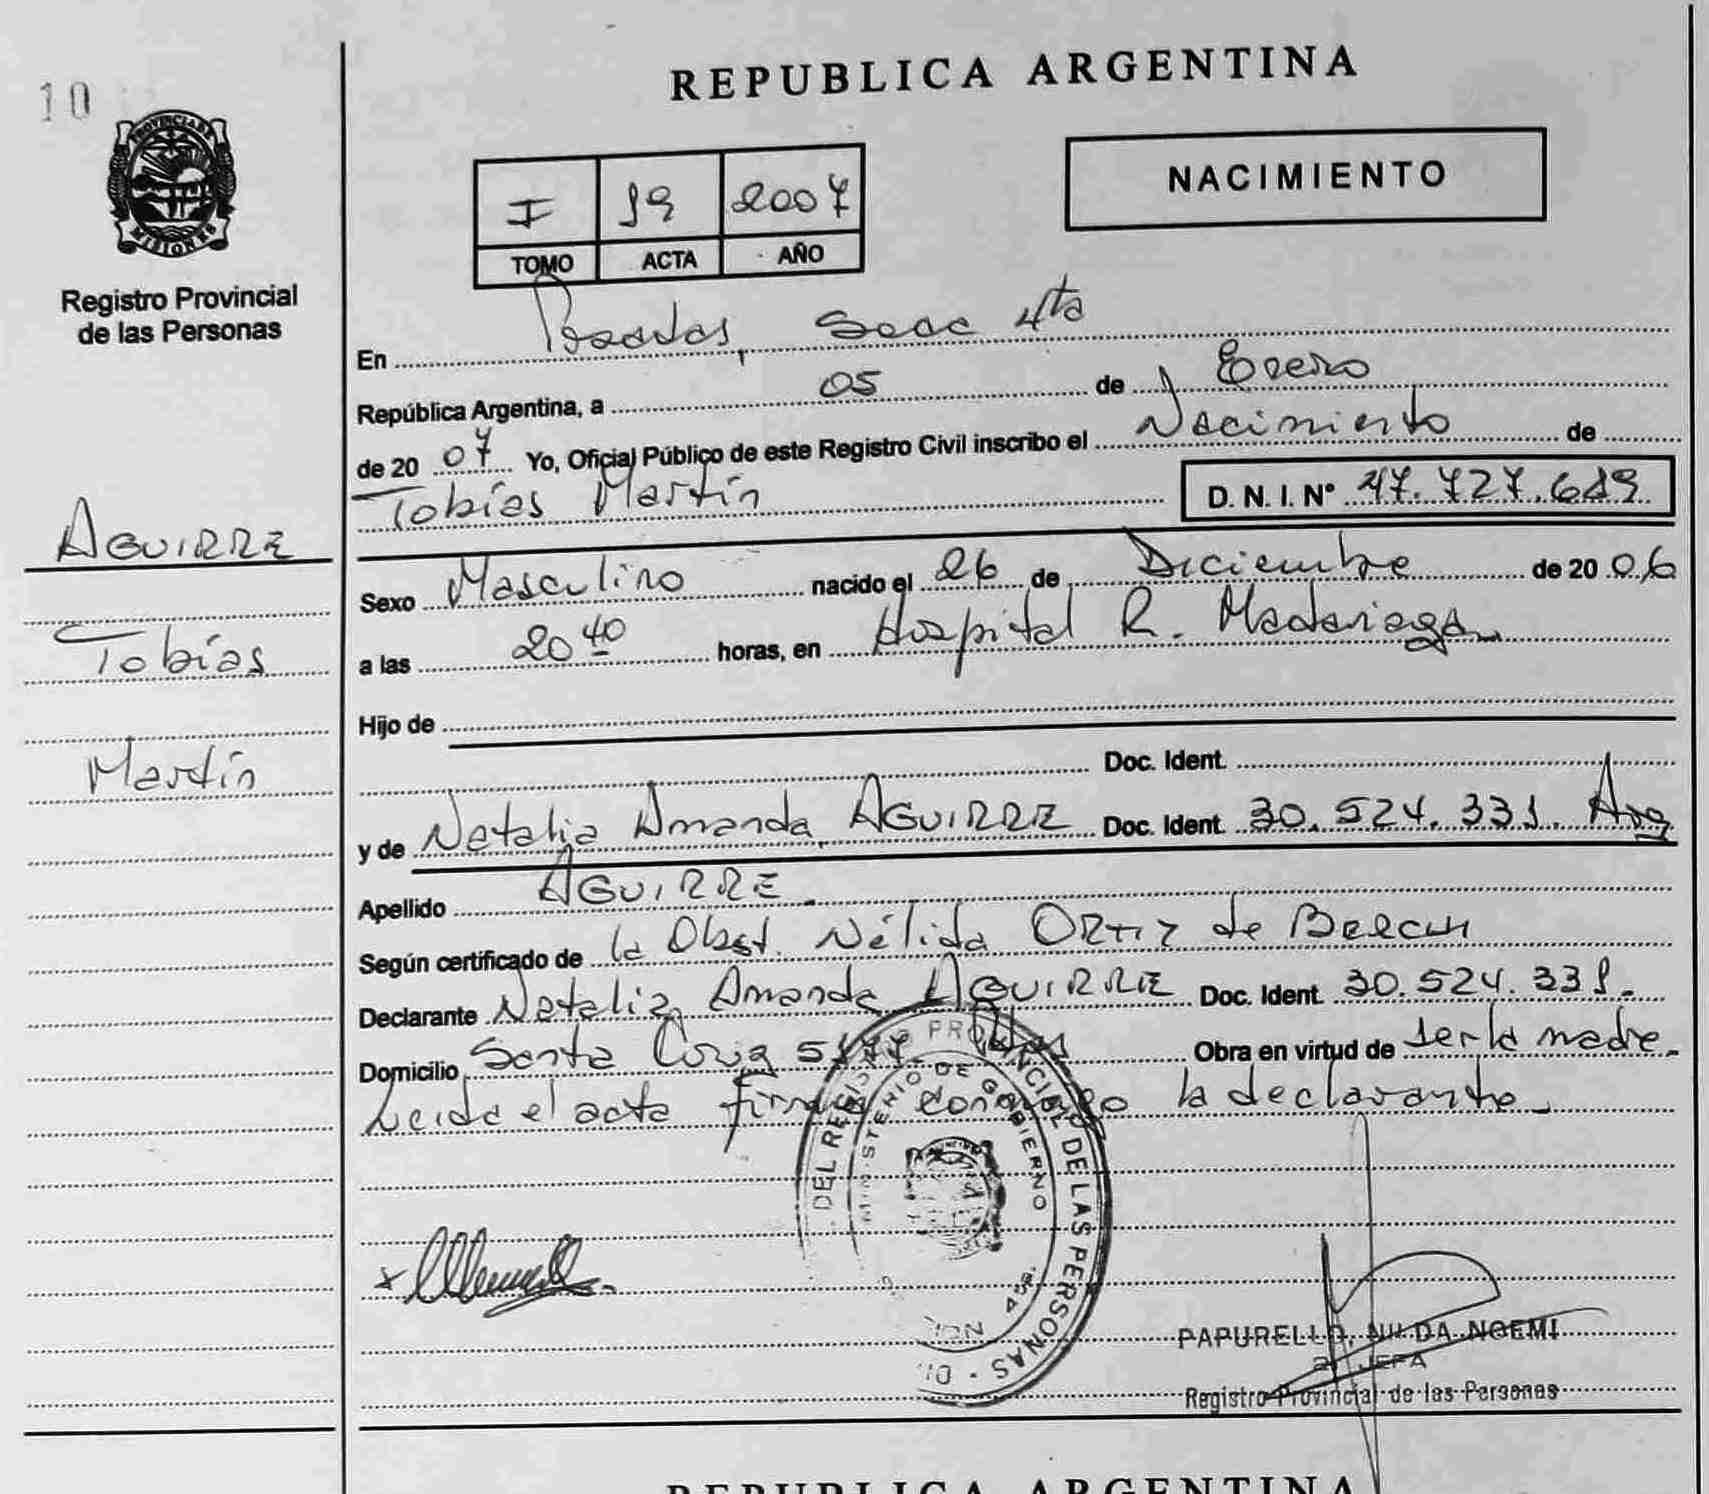 10
REPUBLICA ARGENTINA
PROVINCIA DE
MISIONES
Registro Provincial
de las Personas
NACIMIENTO
I 19 2007
TOMO ACTA AÑO
En Posadas, Secc 4ta
República Argentina, a 05 de Enero
de 2007 Yo, Oficial Público de este Registro Civil inscribo el Nacimiento de
Tobías Martín D. N. I. Nº 47.727.619
AGUIRRE
Tobías
Martín
Sexo Masculino nacido el 26 de Diciembre de 2006
a las 20 40 horas, en Hospital R. Madariaga
Hijo de
Doc. Ident.
y de Natalia Amanda AGUIRRE Doc. Ident. 30.524.331. Arg
Apellido AGUIRRE
Según certificado de la Obst. Nélida ORTIZ de
Declarante Natalia Amanda AGUIRRE Doc. Ident. 30.524.331.
Domicilio Santa Cruz Obra en virtud de ser la madre.
Leida el acta firma conmigo la declarante.
DEL REGISTRO PROVINCIAL DE LAS PERSONAS
MINISTERIO DE GOBIERNO
PAPURELLO, NILDA NOEMI
JEFA
Registro Provincial de las Personas
REPUBLICA ARGENTINA